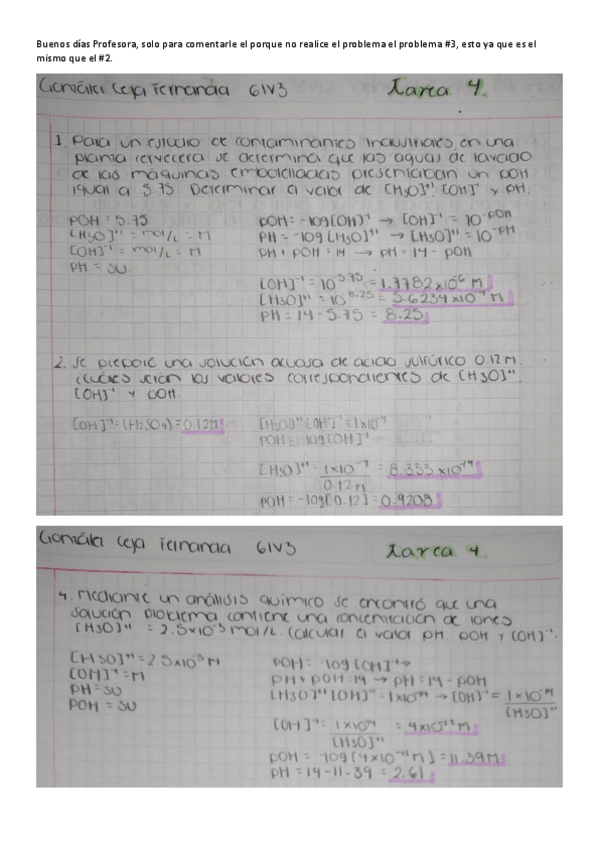 Buenos días Profesora, solo para comentarle el porque no realice el problema el problema #3, esto ya que es el
mismo que el #2.
González Ceja Fernanda 6IV3 Tarea 4.
1. Para un estudio de contaminantes industriales en una
planta cervecera se determina que las aguas de lavado
de las máquinas embotelladas presentaban un pOH
igual a 5.75. Determinar el valor de [H3O]⁺¹, [OH]⁻¹ y pH.
pOH = 5.75 pOH = -log[OH]⁻¹ → [OH]⁻¹ = 10^-pOH
[H3O]⁺¹ = mol/L = M pH = -log[H3O]⁺¹ → [H3O]⁺¹ = 10^-pH
[OH]⁻¹ = mol/L = M pH + pOH = 14 → pH = 14 - pOH
pH = SU
[OH]⁻¹ = 10^-5.75 = 1.7782x10⁻⁶ M
[H3O]⁺¹ = 10^-8.25 = 5.6234x10⁻⁹ M
pH = 14 - 5.75 = 8.25
2. Se preparó una solución acuosa de ácido sulfúrico 0.12 M.
¿Cuáles serían los valores correspondientes de [H3O]⁺¹,
[OH]⁻¹ y pOH.
[OH]⁻¹ = (H2SO4) = 0.12M [H3O]⁺¹ [OH]⁻¹ = 1x10⁻¹⁴
pOH = -log[OH]⁻¹
[H3O]⁺¹ = 1x10⁻¹⁴ = 8.333x10⁻¹⁴
0.12 M
pOH = -log[0.12] = 0.9208
González Ceja Fernanda 6IV3 Tarea 4.
4. Mediante un análisis químico se encontró que una
solución problema contiene una concentración de iones
[H3O]⁺¹ = 2.5x10⁻³ mol/L. Calcular el valor pH, pOH y [OH]⁻¹.
[H3O]⁺¹ = 2.5x10⁻³ M pOH = -log[OH]⁻¹ →
[OH]⁻¹ = M pH + pOH = 14 → pH = 14 - pOH
pH = SU [H3O]⁺¹ [OH]⁻¹ = 1x10⁻¹⁴ → [OH]⁻¹ = 1x10⁻¹⁴
pOH = SU [H3O]⁺¹
[OH]⁻¹ = 1x10⁻¹⁴ = 4x10⁻¹² M
[H3O]⁺¹
pOH = -log[4x10⁻¹² M] = 11.39 M
pH = 14 - 11.39 = 2.61